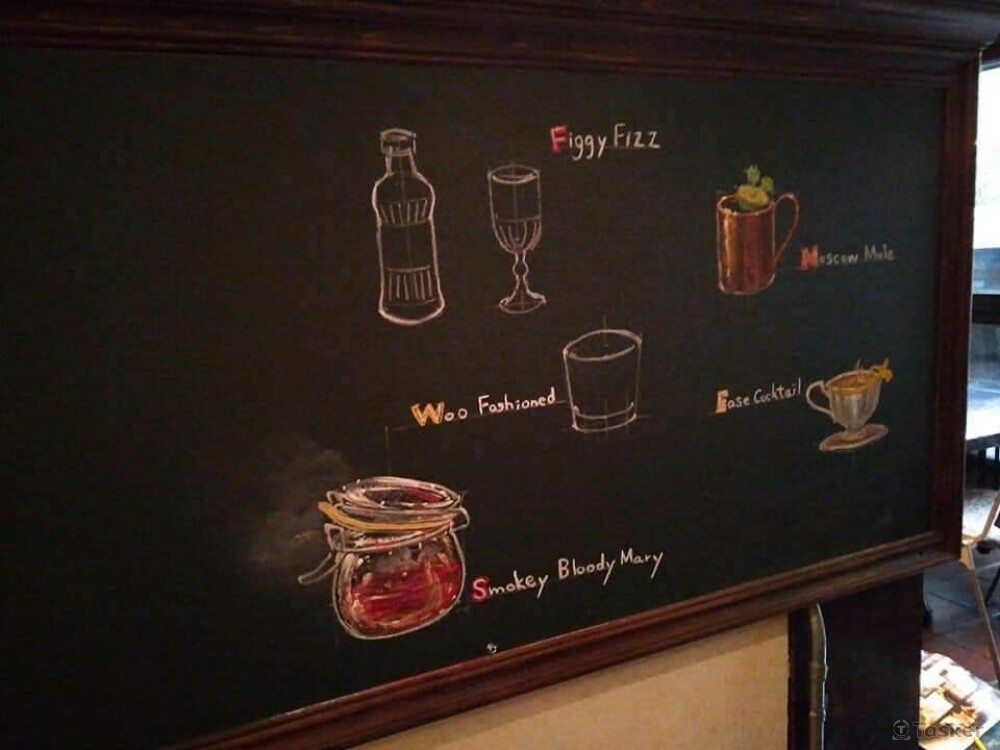 Figgy Fizz
Moscow Mule
Woo Fashioned
Ease Cocktail
Smokey Bloody Mary
Tasker